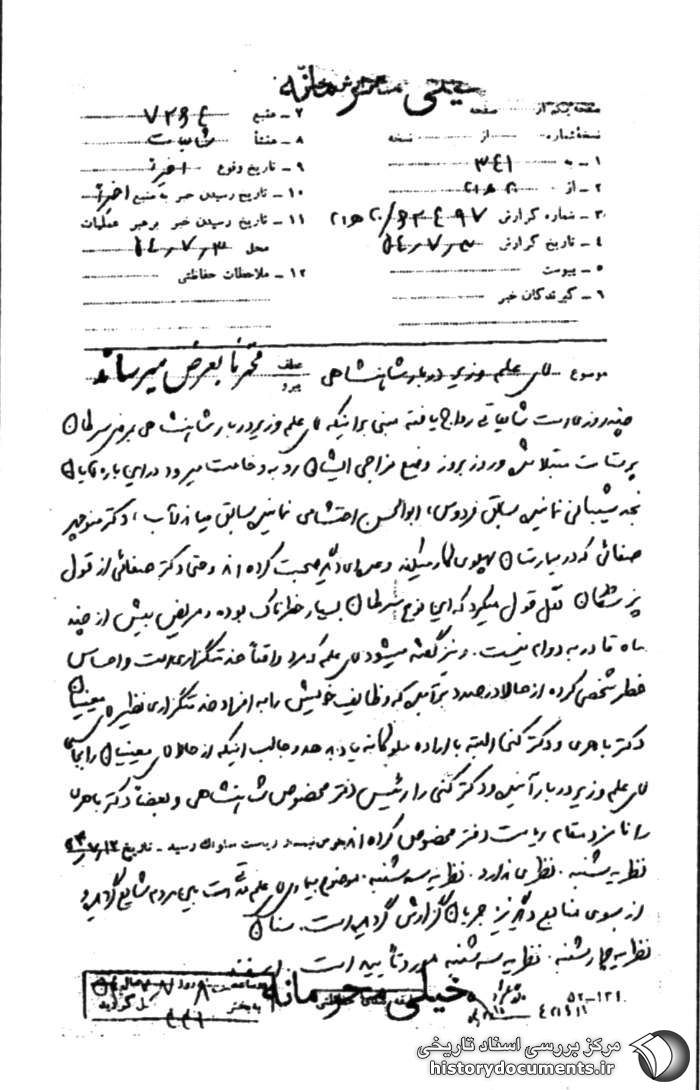 خیلی محرمانه
صفحه یکم از صفحه
نسخه شماره از نسخه
۱ – به ۳۴۱
۲ – از ۲۰ ه ۲۱
۳ – شماره گزارش ۲۰/۶۲۴۹۷ ه ۲۱
۴ – تاریخ گزارش
۵ – پیوست
۶ – گیرندگان خبر
۷ – منبع
۸ – منشأ شایعات
۹ – تاریخ وقوع اخیراً
۱۰ – تاریخ رسیدن خبر به منبع اخیراً
۱۱ – تاریخ رسیدن خبر به رهبر عملیات
محل
۱۲ – ملاحظات حفاظتی
موضوع آقای علم وزیر دربار شاهنشاهی محترماً بعرض میرساند
چند روزی است شایعاتی رواج یافته مبنی بر اینکه آقای علم وزیر دربار شاهنشاهی بمرض سرطان
پروستات مبتلا شده و روز بروز وضع مزاجی ایشان رو به وخامت میرود در این باره آقایان
شیبانی نماینده سابق فردوس، ابوالحسن احتشامی نماینده سابق میاندوآب، دکتر منوچهر
صفائی که در بیمارستان پهلوی کار میکند و عده‌ای دیگر صحبت کرده‌اند و حتی دکتر صفائی از قول
پزشکان نقل قول میکرد که این نوع سرطان بسیار خطرناک بوده و مریض بیش از چند
ماه قادر به دوام نیست. و نیز گفته میشود آقای علم که مرد واقعاً خدمتگزاری است و احساس
خطر شخصی کرده از حالا در صدد برآمده که وظایف خویش را به افراد خدمتگزاری نظیر آقای معینیان
دکتر باهری و دکتر کنی البته با اراده ملوکانه یاد بدهد و جالب اینکه از حالا آقای معینیان را بجای
آقای علم وزیر دربار آینده و دکتر کنی را رئیس دفتر مخصوص شاهنشاهی و بعضاً دکتر باهری
را نامزد مقام ریاست دفتر مخصوص کرده‌اند ریاست ساواک رسید – تاریخ
نظریه شنبه. نظری ندارد. نظریه سه شنبه. موضوع بیماری آقای علم مدتی است بین مردم شایع گردیده و
از سوی منابع دیگر نیز جریان گزارش گردیده است. سنان
نظریه چهارشنبه. نظریه سه شنبه مورد تأیید است. اسفند
خیلی محرمانه
به بخش ۳۴۱
مرکز بررسی اسناد تاریخی
historydocuments.ir